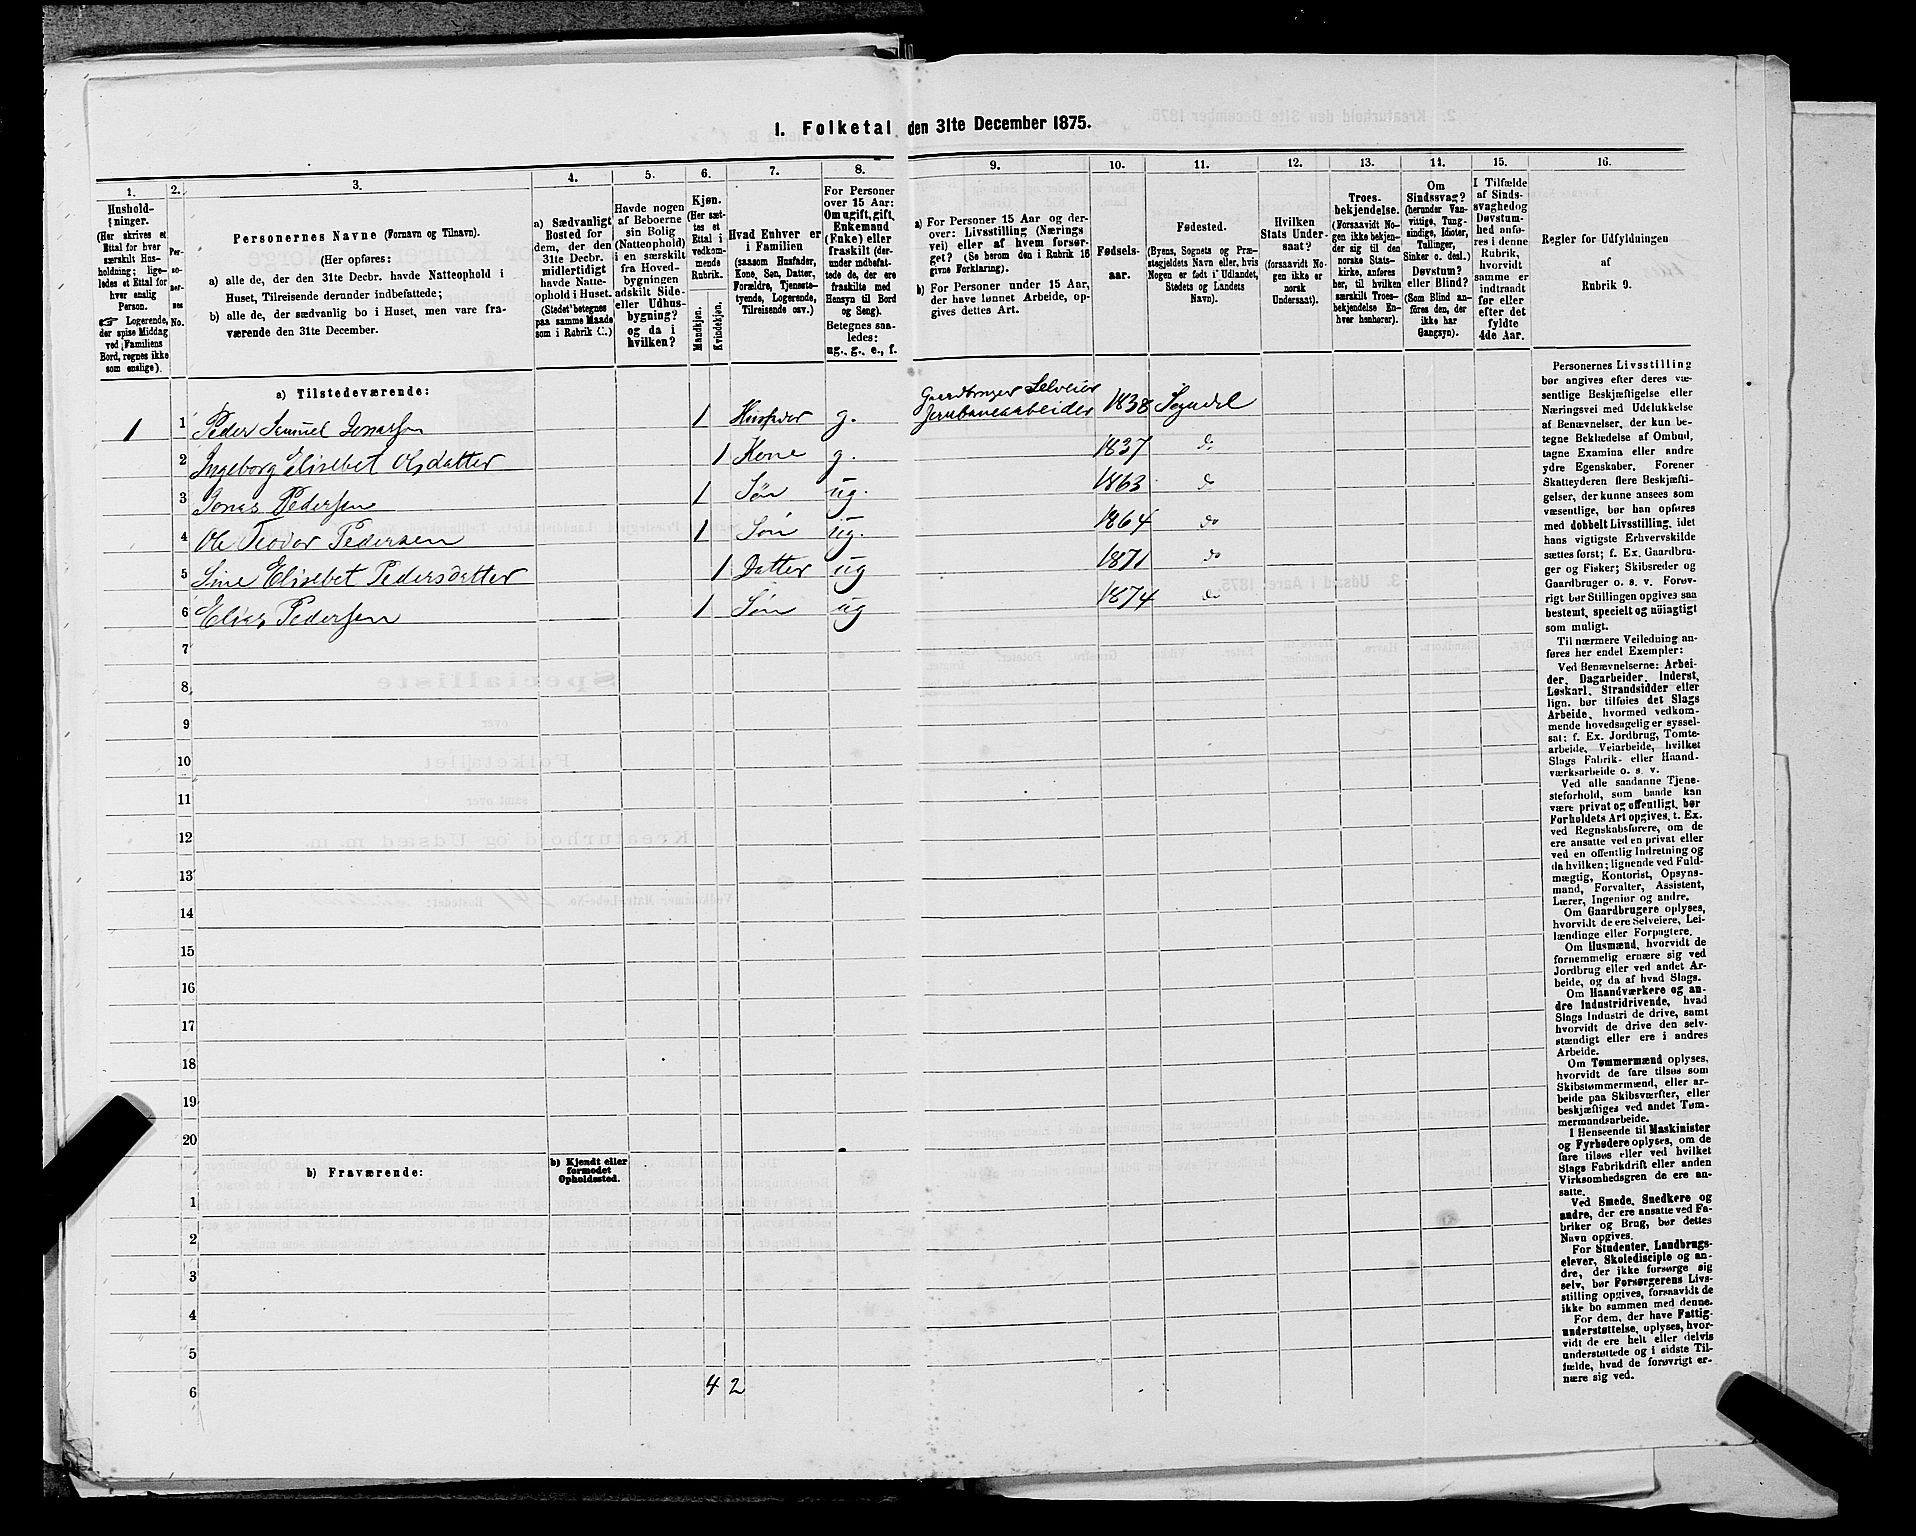 1. Folketal den 31te December 1875.
1.
Hushold-
ninger.
(Her skrives et
Ettal for hver
særskilt Hus-
holdning; lige-
ledes et Ettal for
hver enslig
Person.
☞ Logerende,
der spise Middag
ved Familiens
Bord, regnes ikke
som enslige).
2.
Per-
so-
ner-
nes
No.
3.
Personernes Navne (Fornavn og Tilnavn).
(Her opføres:
a) alle de, der den 31te Decbr. havde Natteophold i
Huset, Tilreisende derunder indbefattede;
b) alle de, der sædvanlig bo i Huset, men vare fra-
værende den 31te December.
4.
a) Sædvanligt
Bosted for
dem, der den
31te Decbr.
midlertidigt
havde Natte-
ophold i Huset.
(Stedet betegnes
paa samme Maade
som i Rubrik C.)
5.
Havde nogen
af Beboerne
sin Bolig
(Natteophold)
i en særskilt
fra Hoved-
bygningen
adskilt Side-
eller Udhus-
bygning?
og da i
hvilken?
6.
Kjøn.
(Her sæt-
tes et
Ettal i
vedkom-
mende
Rubrik.
Mandkjøn.
Kvindekjøn.
7.
Hvad Enhver er
i Familien
(saasom Husfader,
Kone, Søn, Datter,
Forældre, Tjeneste-
tyende, Logerende,
Tilreisende osv.)
8.
For Personer
over 15 Aar:
Om ugift, gift,
Enkemand
(Enke) eller
fraskilt (der-
under indbefat-
tede de, der ere
fraskilte med
Hensyn til Bord
og Seng).
Betegnes saa-
ledes:
ug., g., e., f.
9.
a) For Personer 15 Aar og der-
over: Livsstilling (Nærings
vei) eller af hvem forsør-
get? (Se herom den i Rubrik 16
givne Forklaring).
b) For Personer under 15 Aar,
der have lønnet Arbeide, op-
gives dettes Art.
10.
Fødsels-
aar.
11.
Fødested.
(Byens, Sognets og Præ-
stegjeldets Navn eller, hvis
Nogen er født i Udlandet,
Stedets og Landets
Navn).
12.
Hvilken
Stats Under-
saat?
(forsaavidt No-
gen ikke er
norsk
Undersaat).
13.
Troes-
bekjendelse.
(Forsaavidt No-
gen ikke bekjen-
der sig til den
norske Stats-
kirke, anføres
her, til hvilken
særskilt Troes-
bekjendelse En-
hver henhører).
14.
Om
Sindssvag?
(herunder Van-
vittige, Tung-
sindige, Idioter,
Tullinger,
Sinker o. desl.)
Døvstum?
eller Blind?
(Som Blind an-
føres den, der
ikke har
Gangsyn).
15.
I Tilfælde
af Sinds-
svaghed og
Døvstum-
hed anfø-
res i denne
Rubrik,
hvorvidt
samme er
indtraadt
før eller
efter det
fyldte
4de Aar.
16.
Regler for Udfyldningen
af
Rubrik 9.
a) Tilstedeværende:
1 1 Peder Samuel Jonassen 1 Husfader g. Gaardbruger Selveier Jernbanearbeider 1838 Sogndal
2 Ingeborg Elisebet Olsdatter 1 Kone g. 1837 do
3 Jonas Pedersen 1 Søn ug. 1863 do
4 Ole Teodor Pedersen 1 Søn ug. 1864 do
5 Sine Elisebet Pedersdatter 1 Datter ug 1871 do
6 Elias Pedersen 1 Søn ug 1874 do
7
8
9
10
11
12
13
14
15
16
17
18
19
20
b) Fraværende:
b) Kjendt eller
formodet
Opholdssted.
1
2
3
4
5
6
4 2
Personernes Livsstilling
bør angives efter deres væ-
sentlige Beskjæftigelse eller
Næringsvei med Udelukkelse
af Benævnelser, der kun be-
tegne Beklædelse af Ombud,
tagne Examina eller andre
ydre Egenskaber. Forener
Skatteyderen flere Beskjæfti-
gelser, der kunne ansees som
væsentlige, bør han opføres
med dobbelt Livsstilling, idet
hans vigtigste Erhvervskilde
sættes først; f. Ex. Gaardbru-
ger og Fisker; Skibsreder og
Gaardbruger o. s. v. Forøv-
rigt bør Stillingen opgives saa
bestemt, specielt og nøiagtigt
som muligt.
Til nærmere Veiledning an-
føres her endel Exempler:
Ved Benævnelserne: Arbei-
der, Dagarbeider, Inderst,
Løskarl, Strandsidder eller
lign. bør tilføies det Slags
Arbeide, hvormed vedkom-
mende hovedsagelig er syssel-
sat; f. Ex. Jordbrug, Tomte-
arbeide, Veiarbeide, hvilket
Slags Fabrik- eller Haand-
værksarbeide o. s. v.
Ved alle saadanne Tjene-
steforhold, som baade kan
være privat og offentligt, bør
Forholdets Art opgives, t. Ex.
ved Regnskabsførere, om de
ere ansatte ved en privat eller
ved en offentlig Indretning og
da hvilken; lignende ved Fuld-
mægtig, Kontorist, Opsyns-
mand, Forvalter, Assistent,
Lærer, Ingeniør og andre.
Om Gaardbrugere oplyses,
hvorvidt de ere Selveiere, Lei-
lændinge eller Forpagtere.
Om Husmænd, hvorvidt de
fornemmelig ernære sig ved
Jordbrug eller ved andet Ar-
beide, og da af hvad Slags.
Om Haandværkere og an-
dre Industridrivende, hvad
Slags Industri de drive, samt
hvorvidt de drive den selv-
stændigt eller ere i andres
Arbeide.
Om Tømmermænd oplyses,
hvorvidt de fare tilsøs som
Skibstømmermænd, eller ar-
beide paa Skibsværfter, eller
beskjæftiges ved andet Tøm-
mermandsarbeide.
I Henseende til Maskinister
og Fyrbødere oplyses, om de
fare tilsøs eller ved hvilket
Slags Fabrikdrift eller anden
Virksomhedsgren de ere an-
satte.
Ved Smede, Snedkere og
andre, der ere ansatte ved Fa-
briker og Brug, bør dettes
Navn opgives.
For Studenter, Landbrugs-
elever, Skoledisciple og an-
dre, der ikke forsørge sig
selv, bør Forsørgerens Livs-
stilling opgives, forsaavidt de
ikke bo sammen med denne.
For dem, der have Fattig-
understøttelse, oplyses, hvor-
vidt de ere helt eller delvis
understøttede og i sidste Til-
fælde, hvad de forøvrigt er-
nære sig ved.